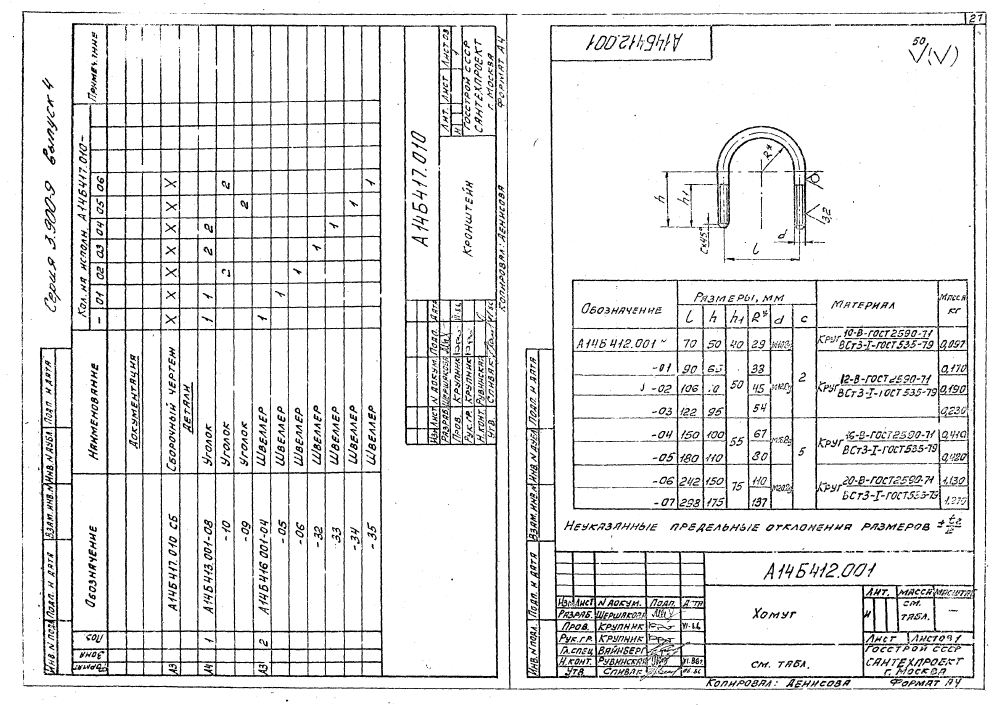 Серия 3.900-9 Выпуск 4
Формат
Зона
Поз.
Обозначение
Наименование
Кол. на исполн. А14Б417.010-
Примечание
- 01 02 03 04 05 06
Документация
А3 А14Б417.010 СБ Сборочный чертеж X X X X X X X
Детали
А4 1 А14Б413.001-08 Уголок 1 1 2 2
-10 Уголок 2 2
-09 Уголок 2
А3 2 А14Б416.001-04 Швеллер 1
-05 Швеллер 1
-06 Швеллер 1
-32 Швеллер 1
-33 Швеллер 1
-34 Швеллер 1
-35 Швеллер 1
Инв. N подл. Подп. и дата Взам. инв. N Инв. N дубл. Подп. и дата
А14Б417.010
Изм Лист N докум. Подп. Дата
Разраб. Шершакова
Пров. Крупник
Рук. гр. Крупник
Н.конт. Рувинская
Утв. Спивак
Кронштейн
Лит. Лист Листов
И 1
Госстрой СССР
Сантехпроект
г. Москва
Копировал: Денисова
Формат А4
27
А14Б412.001
50
R*
h
h1
c×45°
l
d
3,2
Обозначение
Размеры, мм
Материал
Масса кг
l h h1 R* d c
А14Б412.001 70 50 40 29 Круг 10-В-ГОСТ 2590-71 ВСт3-I-ГОСТ 535-79 0,097
-01 90 33 0,170
-02 106 50 45 2 Круг 12-В-ГОСТ 2590-71 ВСт3-I-ГОСТ 535-79 0,190
-03 122 95 54 0,230
-04 150 100 55 67 Круг 16-В-ГОСТ 2590-71 ВСт3-I-ГОСТ 535-79 0,410
-05 180 110 80 5 0,480
-06 242 150 75 110 Круг 20-В-ГОСТ 2590-71 ВСт3-I-ГОСТ 535-79 1,130
-07 298 175 137
Неуказанные предельные отклонения размеров ± t2/2
А14Б412.001
Изм Лист N докум. Подп. Дата
Разраб. Шершакова
Пров. Крупник VI.86
Рук. гр. Крупник
Гл. спец. Вайнберг
Н.конт. Рувинская VI.86
Утв. Спивак
Хомут
см. табл.
Лит. Масса Масштаб
И см. табл. —
Лист Листов 1
Госстрой СССР
Сантехпроект
г. Москва
Инв. N подл. Подп. и дата Взам. инв. N Инв. N дубл. Подп. и дата
Копировал: Денисова
Формат А4